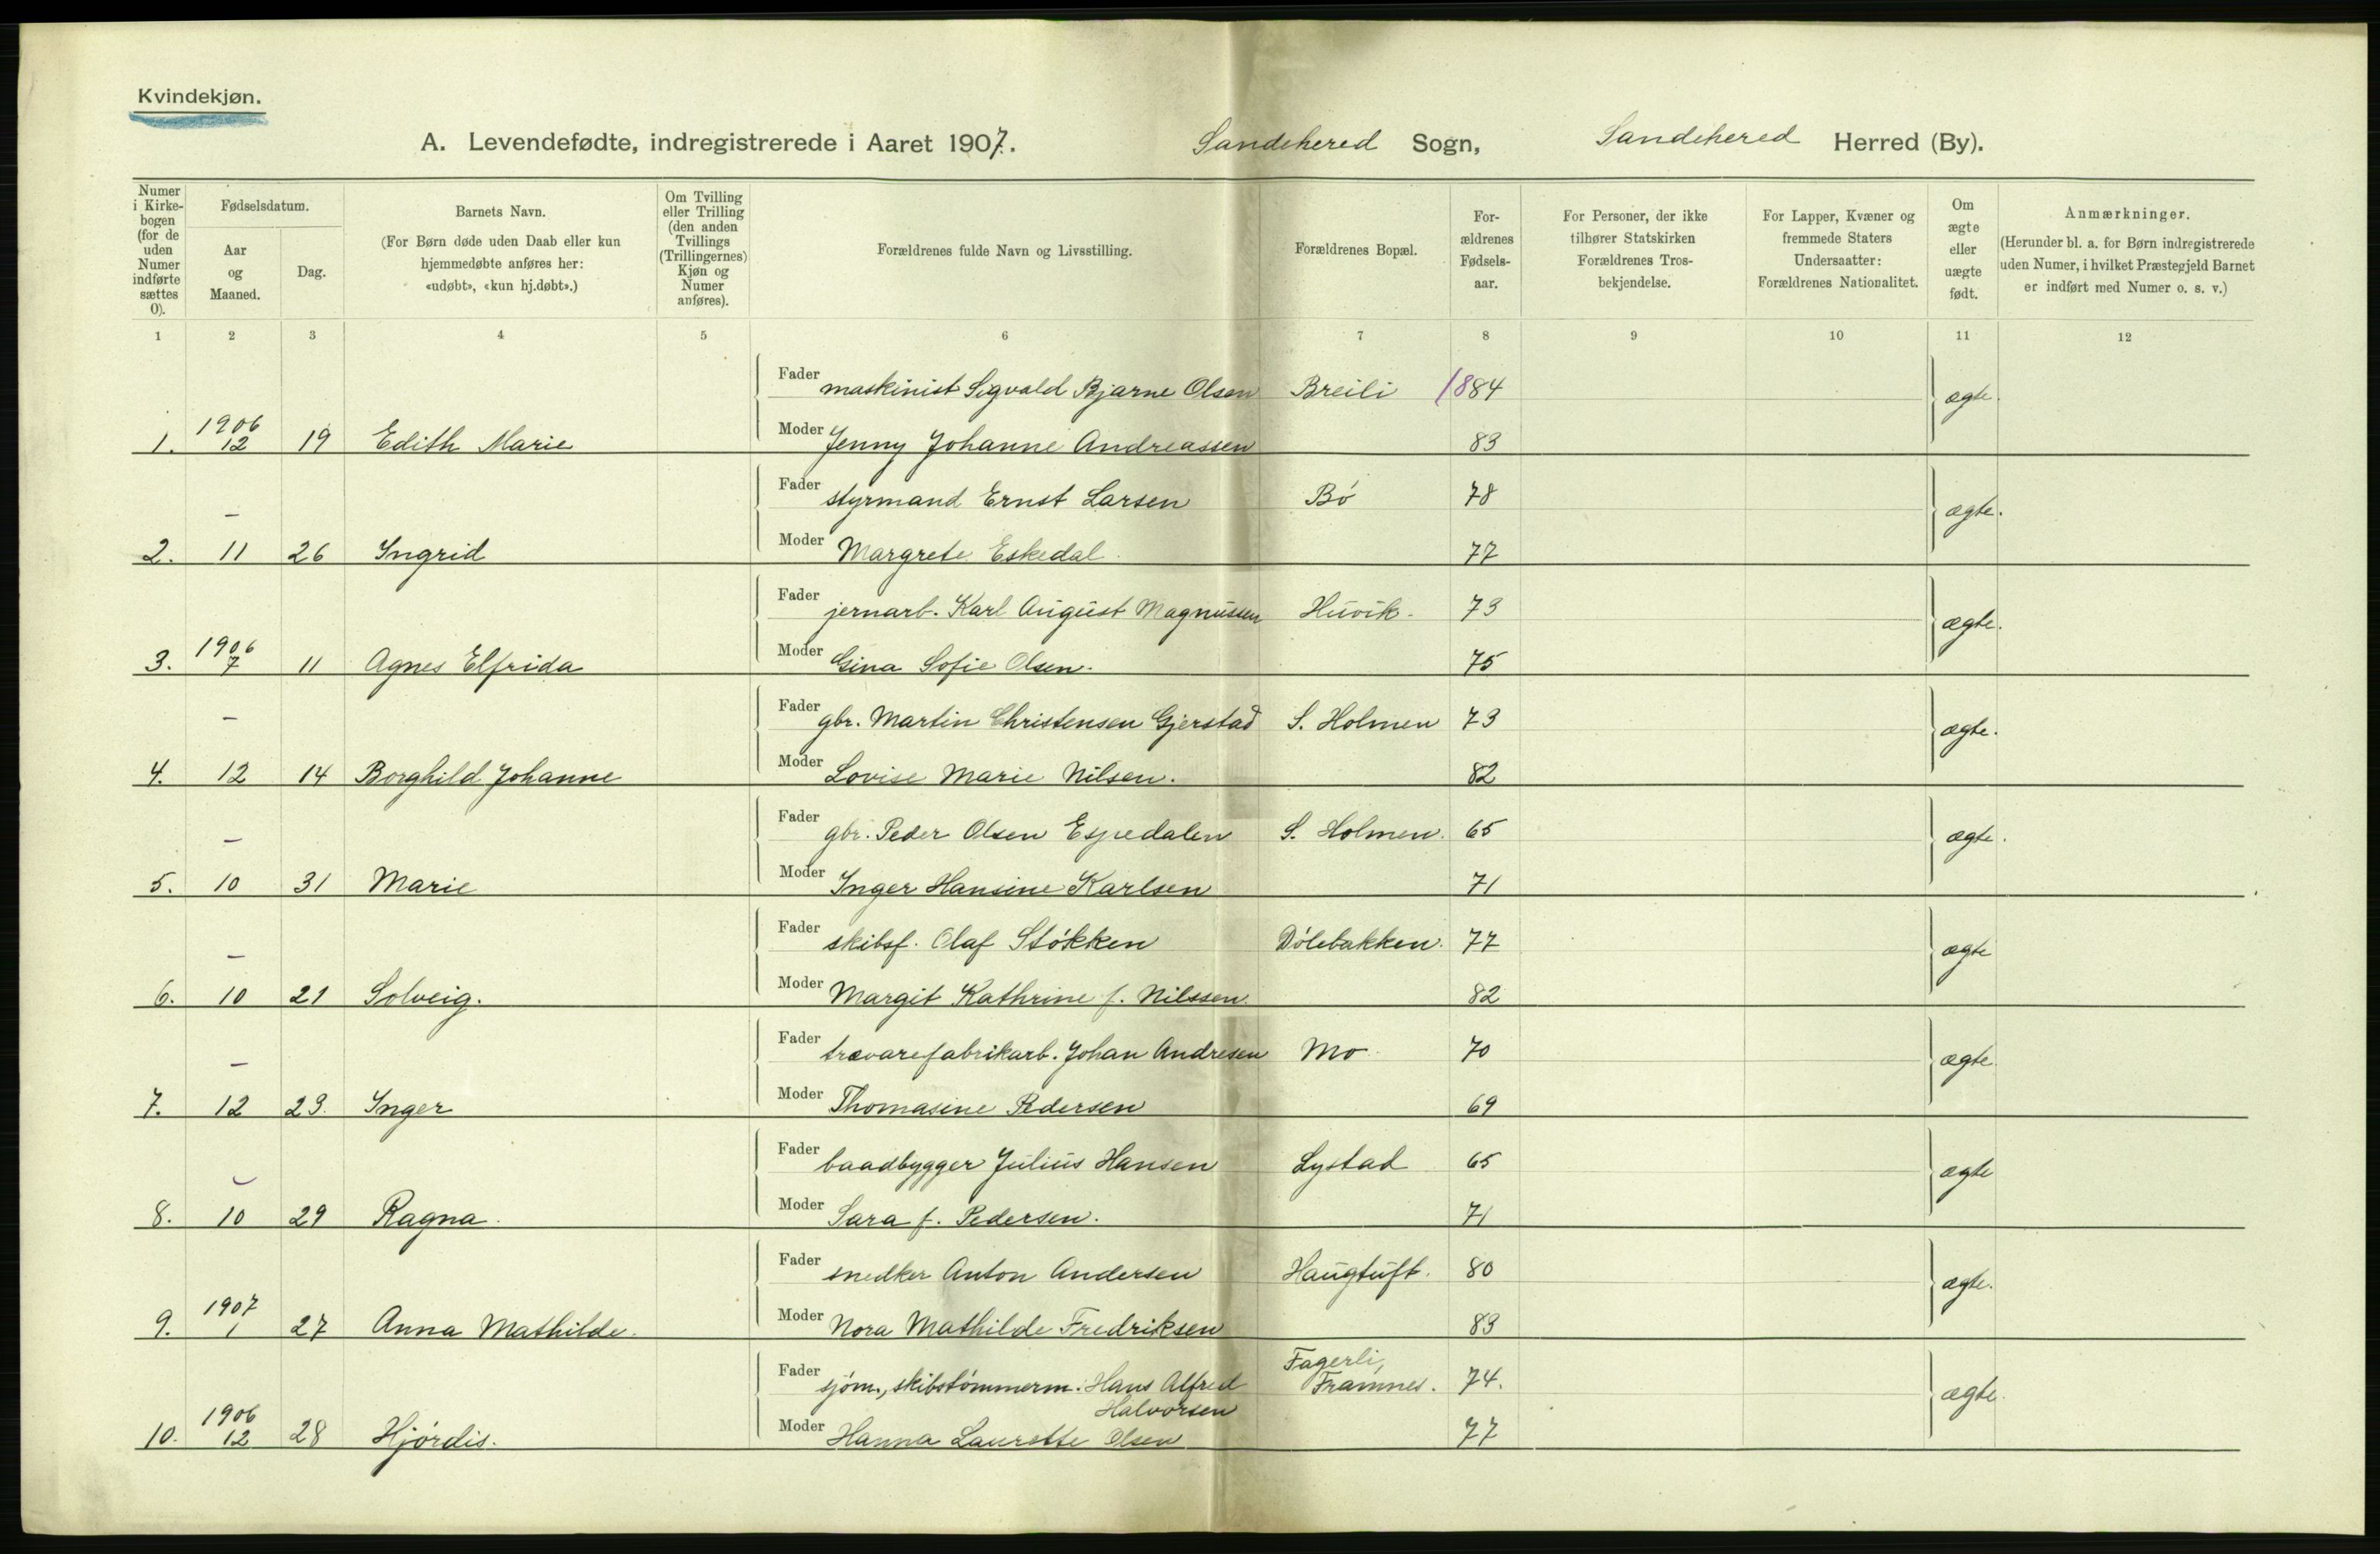 Kvindekjøn.
A. Levendefødte, indregistrerede i Aaret 1907. Sandehered Sogn, Sandehered Herred (By).
Numer i Kirkebogen (for de uden Numer indførte sættes 0).
Fødselsdatum.
Aar og Maaned.
Dag.
Barnets Navn.
(For Børn døde uden Daab eller kun hjemmedøbte anføres her: «udøbt», «kun hj.døbt».)
Om Tvilling eller Trilling (den anden Tvillings (Trillingernes) Kjøn og Numer anføres).
Forældrenes fulde Navn og Livsstilling.
Forældrenes Bopæl.
For-
ældrenes
Fødsels-
aar.
For Personer, der ikke
tilhører Statskirken
Forældrenes Tros-
bekjendelse.
For Lapper, Kvæner og
fremmede Staters
Undersaatter:
Forældrenes Nationalitet.
Om
ægte
eller
uægte
født.
Anmærkninger.
(Herunder bl. a. for Børn indregistrerede
uden Numer, i hvilket Præstegjeld Barnet
er indført med Numer o. s. v.)
1 2 3 4 5 6 7 8 9 10 11 12
Fader maskinist Sigvald Bjarne Olsen Breili 1884 ægte
1. 1906 12 19 Edith Marie Moder Jenny Johanne Andreassen 83
Fader styrmand Ernst Larsen Bö 78 ægte.
2. – 11 26 Ingrid Moder Margrete Eskedal. 77
Fader jernarb. Karl August Magnussen Huvik. 73 ægte.
3. 1906 7 11 Agnes Elfrida Moder Gina Sofie Olsen. 75
Fader gbr. Martin Christensen Gjerstad S. Holmen 73 ægte.
4. – 12 14 Borghild Johanne Moder Lovise Marie Nilsen. 82
Fader gbr. Peder Olsen Espedalen S. Holmen. 65 ægte.
5. – 10 31 Marie Moder Inger Hansine Karlsen 71
Fader skibsf. Olaf Stökken Dölebakken. 77 ægte
6. – 10 21 Solveig. Moder Margit Kathrine f. Nilssen. 82
Fader trævarefabrikarb. Johan Andresen Mo 70 ægte
7. – 12 23. Inger Moder Thomasine Pedersen 69
Fader baadbygger Julius Hansen Lystad 65 ægte
8. – 10 29 Ragna. Moder Sara f. Pedersen. 71
Fader snedker Anton Andersen Haugtuft. 80 ægte.
9. 1907 1 27 Anna Mathilde. Moder Nora Mathilde Fredriksen 83
Fader sjöm., skibstömmerm. Hans Alfred Halvorsen Fagerli, Framnes. 74. ægte.
10. 1906 12 28 Hjördis. Moder Hanna Laurette Olsen 77